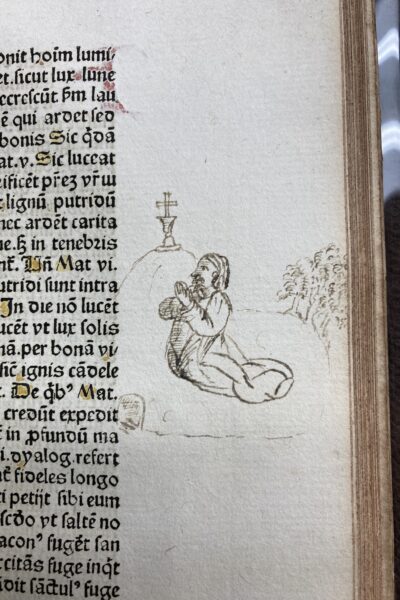 onit hoīm lumi⸗
et. sicut lux lune
ecrescūt ẜm lau
ē qui ardet sed
bonis Sic q̄dā
at. v. Sic luceat
rificēt p̄rēȝ vr̄ꝫ
t lignū putridū
nec ardēt carita
ne. sꝫ in tenebris
Un̄ Mat vi.
utridi sunt intra
In die nō lucēt
ucēt vt lux solis
nā. per bonā vi⸗
sic̄ ignis cādele
De q̄bꝰ Mat.
credūt expedit
in ꝓfundū ma
i. dyalog. refert
fideles longo
ti petijt sibi eum
vt saltē no
aconꝰ fugēt san
citās fuge inq̄t
idit sāctulꝰ fuge